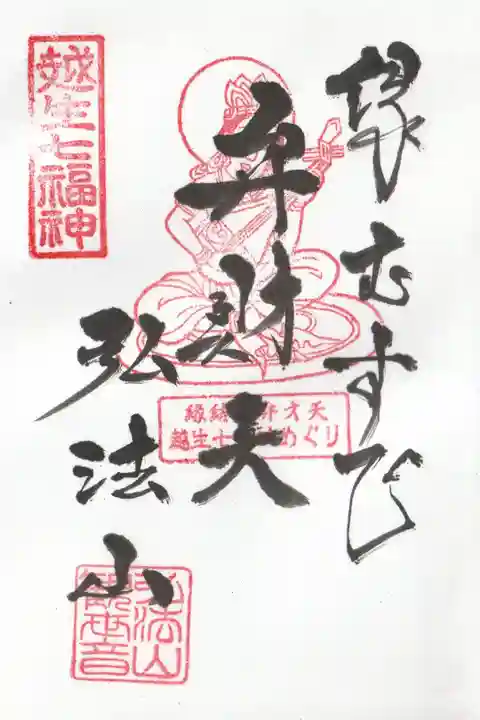 縁むすび
弁財天
弘法山
越生七福神
縁結 弁才天
越生七 めぐり
弘法山
観世音